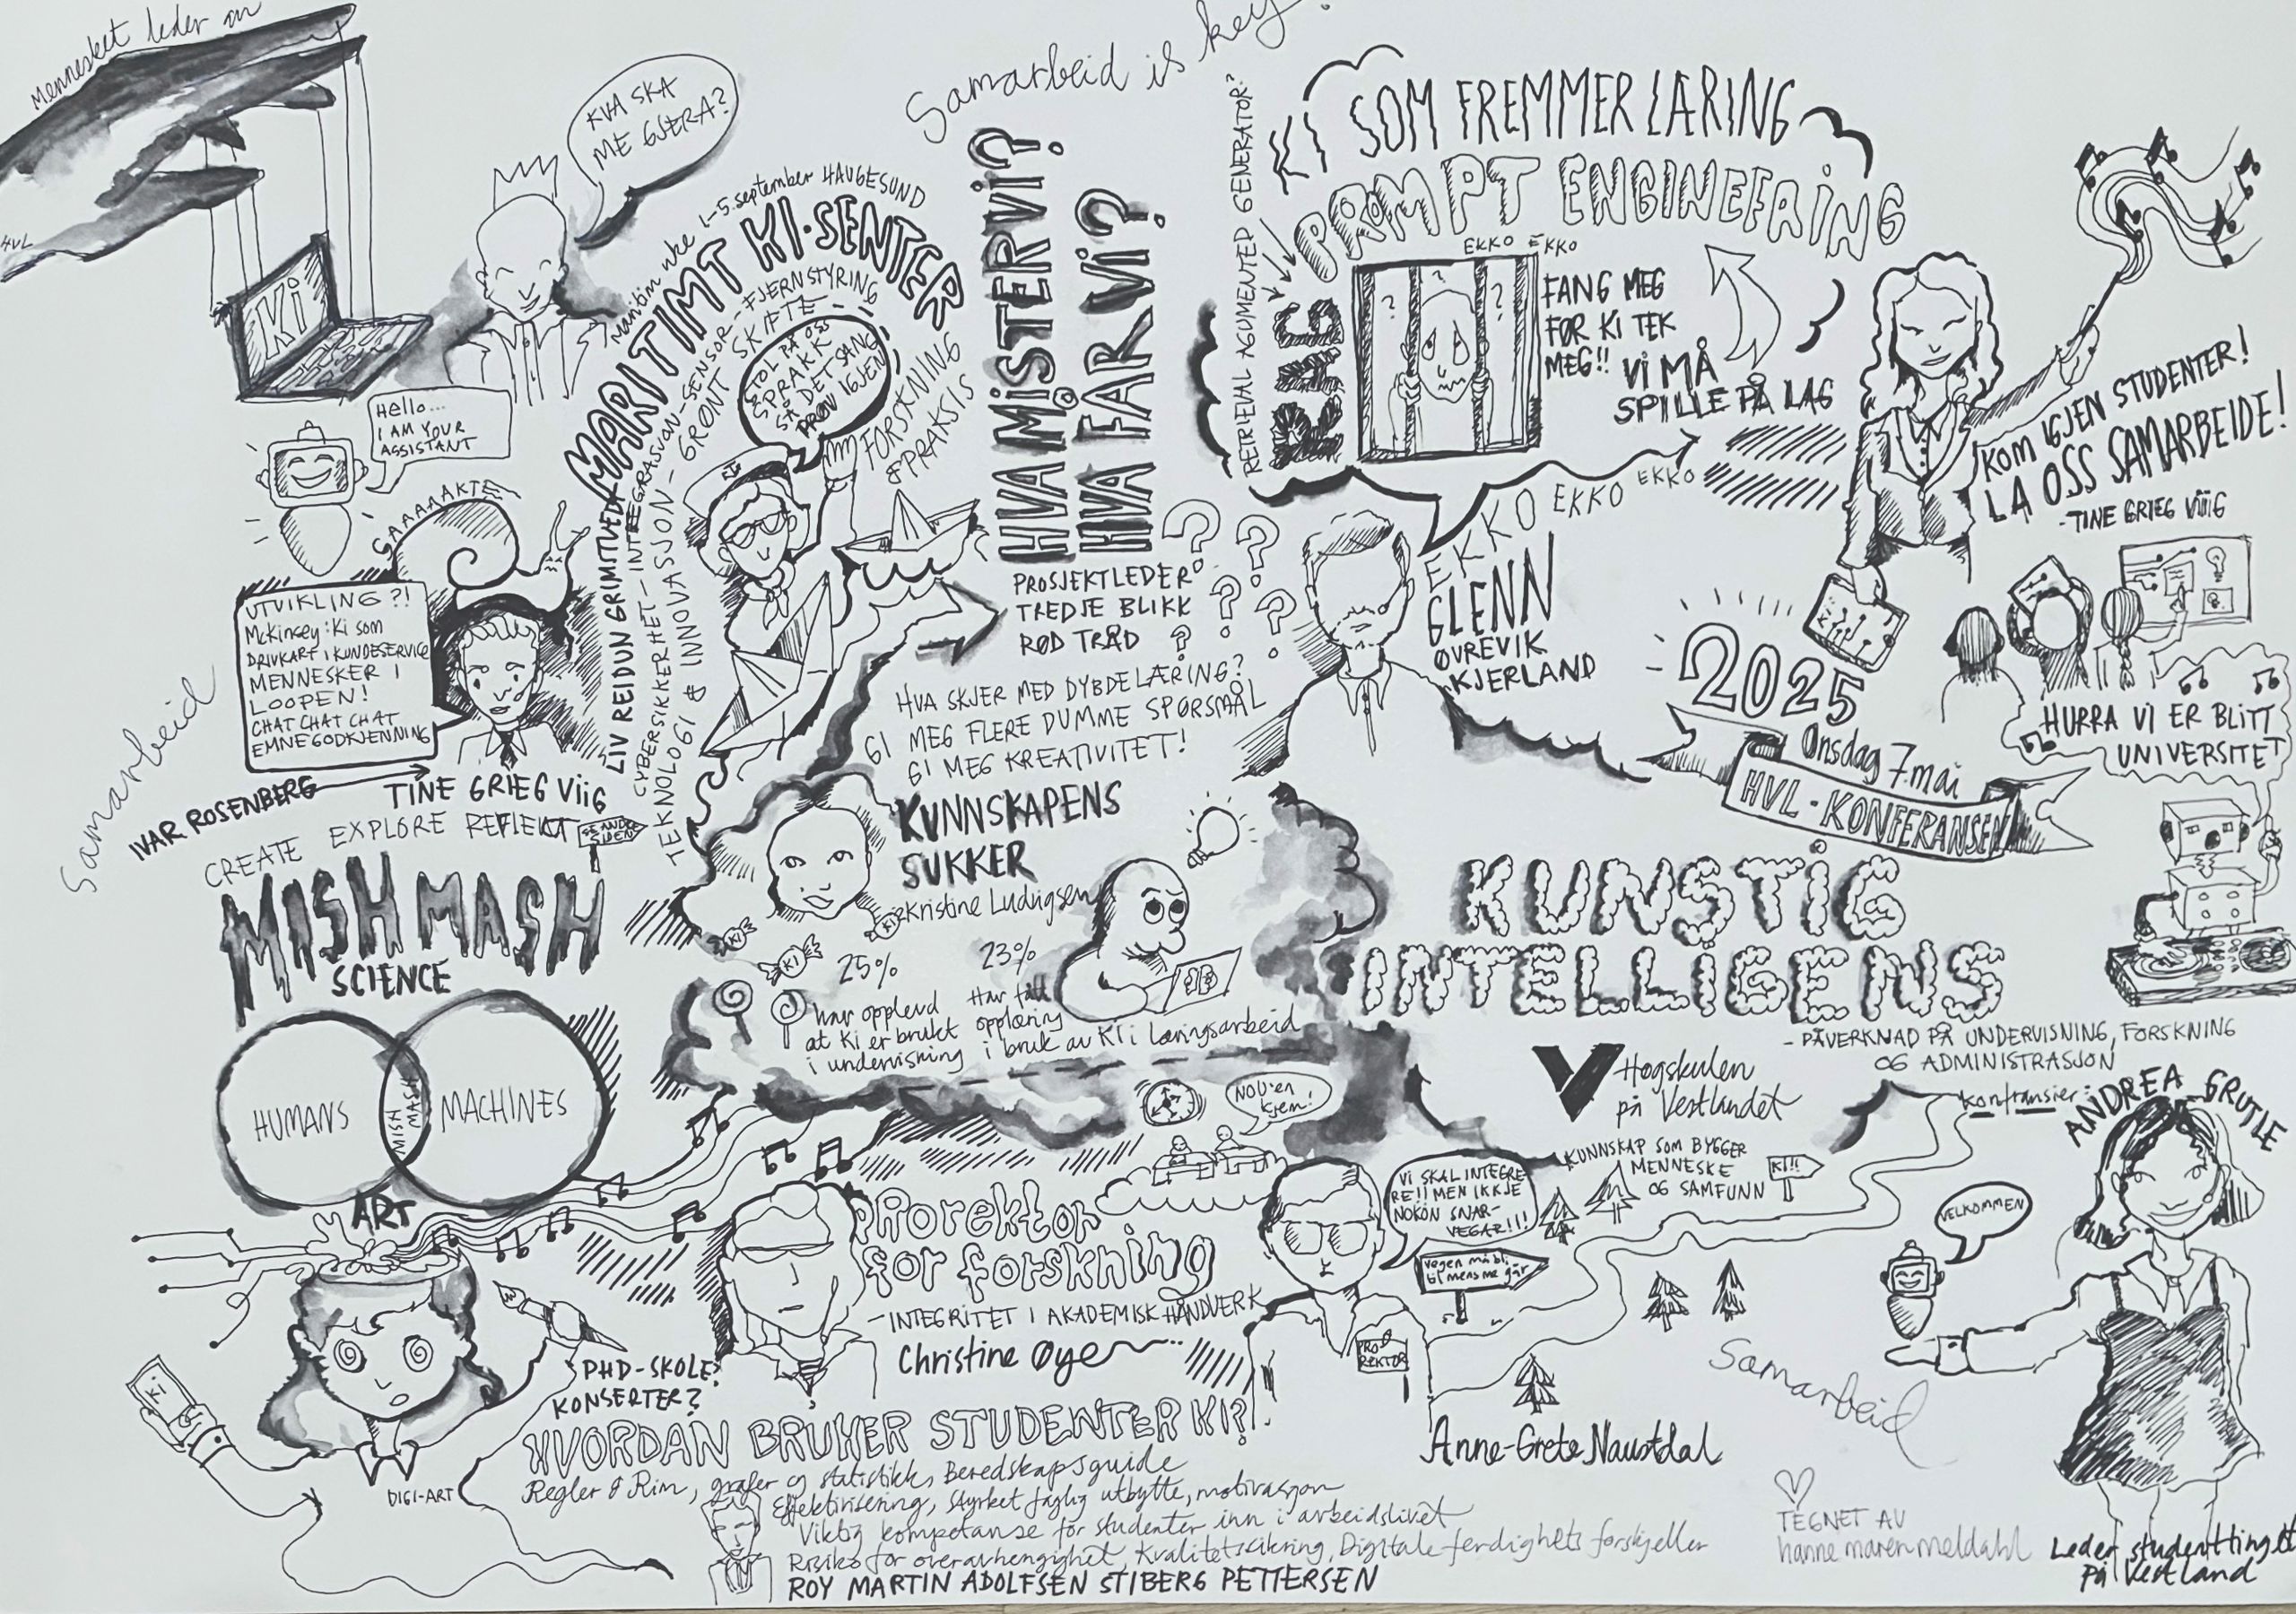 Mennesket leder an
HVL
Ki
KVA SKA
ME GJERA?
Hello...
I AM YOUR
ASSISTANT
SAAAAAKTE
UTVIKLING ?!
McKinsey: Ki som
DRIVKART I KUNDESERVICE
MENNESKER I
LOOPEN!
CHAT CHAT CHAT
EMNEGODKJENNING
IVAR ROSENBERG
TINE GRIEG Viig
Samarbeid
CREATE EXPLORE REFLEKT
SE ANDRE
SIDEN
MISHMASH
SCIENCE
HUMANS
MISH
MASH
MACHINES
ART
Ki
DIGI-ART
PHD-SKOLE?
KONSERTER?
maritim uke 1-5. september HAUGESUND
MARITIMT KI-SENTER
LIV REIDUN GRIMSTVEDT
CYBERSIKKERHET-INTEGRASJON-SENSOR-FJERNSTYRING
TEKNOLOGI & INNOVASJON-GRØNT SKIFTE
STOL PÅ OSS
SPRAKK
SÅ DET SANG
PRØV IGJEN
FORSKNING
& PRAKSIS
Samarbeid is key!
HVA MISTER Vi?
HVA FÅR Vi?
PROSJEKTLEDER
TREDJE BLIKK
RØD TRÅD
HVA SKJER MED DYBDELÆRING?
GI MEG FLERE DUMME SPØRSMÅL
GI MEG KREATIVITET!
KUNNSKAPENS
SUKKER
Kristine Ludvigsen
KI
KI
KI
25%
har opplevd
at Ki er brukt
i undervisning
23%
Har fått
opplæring
i bruk av KI i læringsarbeid
RETRIEVAL AGUMENTED GENERATOR?
RAG
KI SOM FREMMER LÆRING
PROMPT ENGINEERING
EKKO EKKO
FANG MEG
FØR KI TEK
MEG!!
Vi MÅ
SPILLE PÅ LAG
EKKO EKKO EKKO
GLENN
ØVREVIK
KJERLAND
KOM IGJEN STUDENTER!
LA OSS SAMARBEIDE!
-TINE GRIEG Viig
2025
Onsdag 7. mai
HVL-KONFERANSEN
HURRA VI ER BLITT
UNIVERSITET
KUNSTIG
INTELLIGENS
- PÅVERKNAD PÅ UNDERVISNING, FORSKNING
OG ADMINISTRASJON
Høgskulen
på Vestlandet
KUNNSKAP SOM BYGGER
MENNESKE
OG SAMFUNN
KI!!
konfransier:
ANDREA GRUTLE
VELKOMMEN
NOU'en
kjem!
Prorektor
for forskning
-INTEGRITET I AKADEMISK HÅNDVERK
Christine Øye
VI SKAL INTEGRE
RE!! MEN IKKJE
NOKON SNAR-
VEGAR!!!
Vegen må bli
til mens me går
PRO
REKTOR
Anne-Grete Naustdal
Samarbeid
HVORDAN BRUKER STUDENTER KI?
Regler & Rim, grafer og statistikk, Beredskapsguide
Effektivisering, styrket faglig utbytte, motivasjon
Viktig kompetanse for studenter inn i arbeidslivet
Risiko for overavhengighet, Kvalitetssikring, Digitale ferdighets forskjeller
ROY MARTIN ADOLFSEN STIBERG PETTERSEN
TEGNET AV
hanne maren meldahl
Leder studenttinget
På Vestland